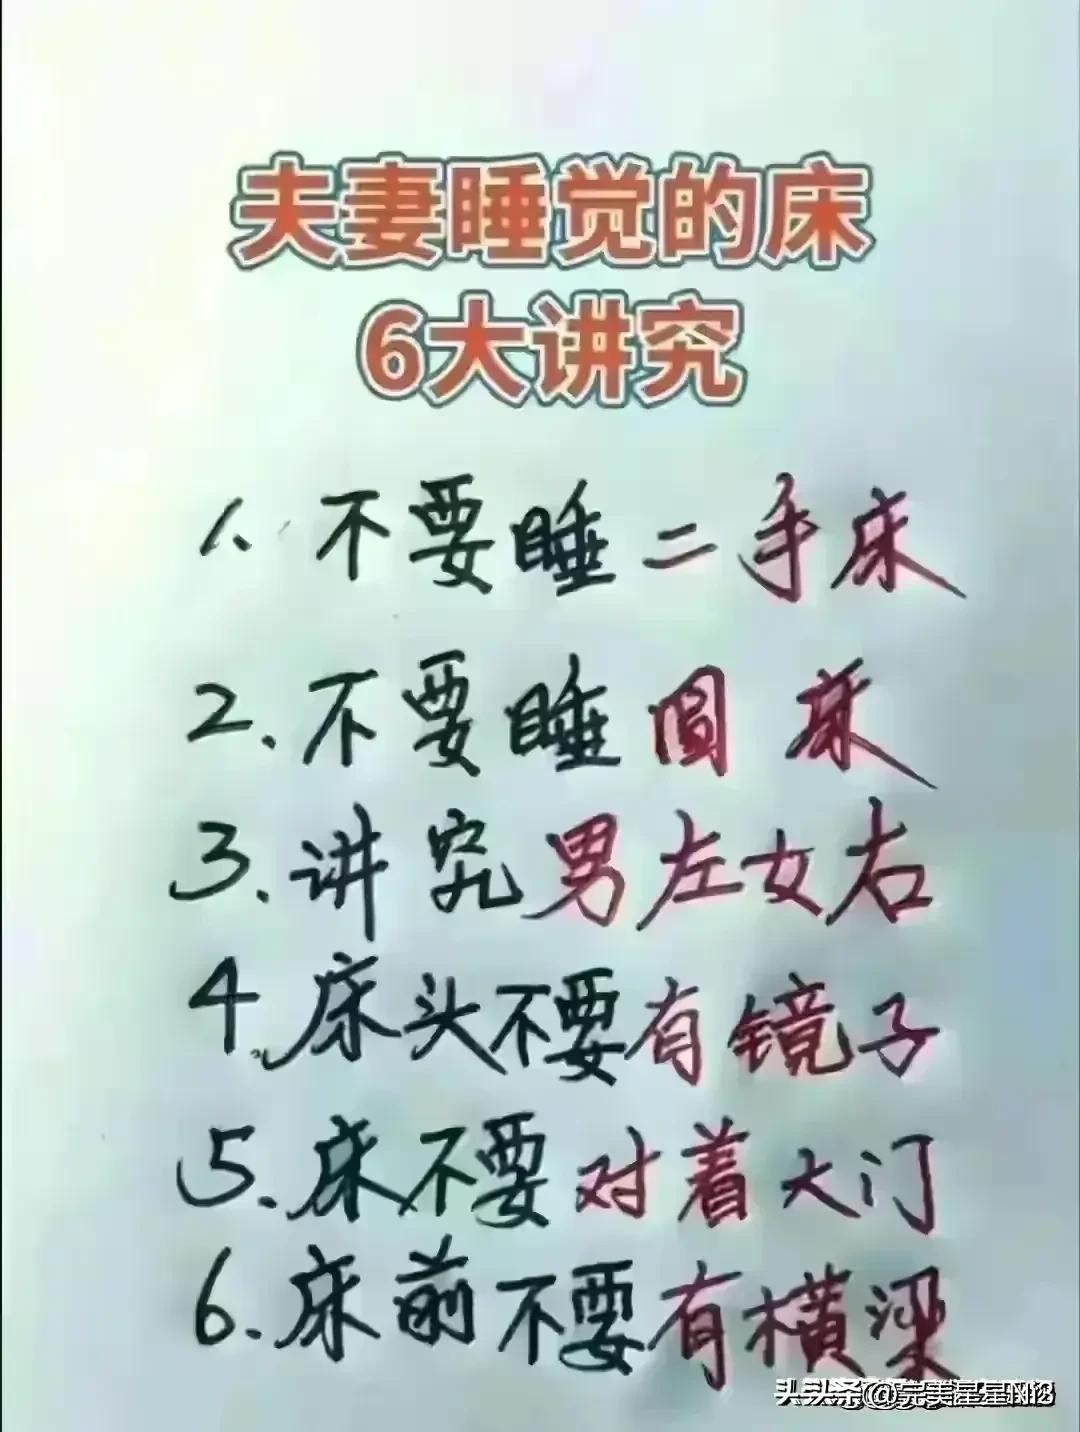 夫妻睡觉的床
6大讲究
1、不要睡二手床
2.不要睡圆床
3.讲究男左女右
4、床头不要有镜子
5.床不要对着大门
6.床前不要有横梁
头头条@完美星星